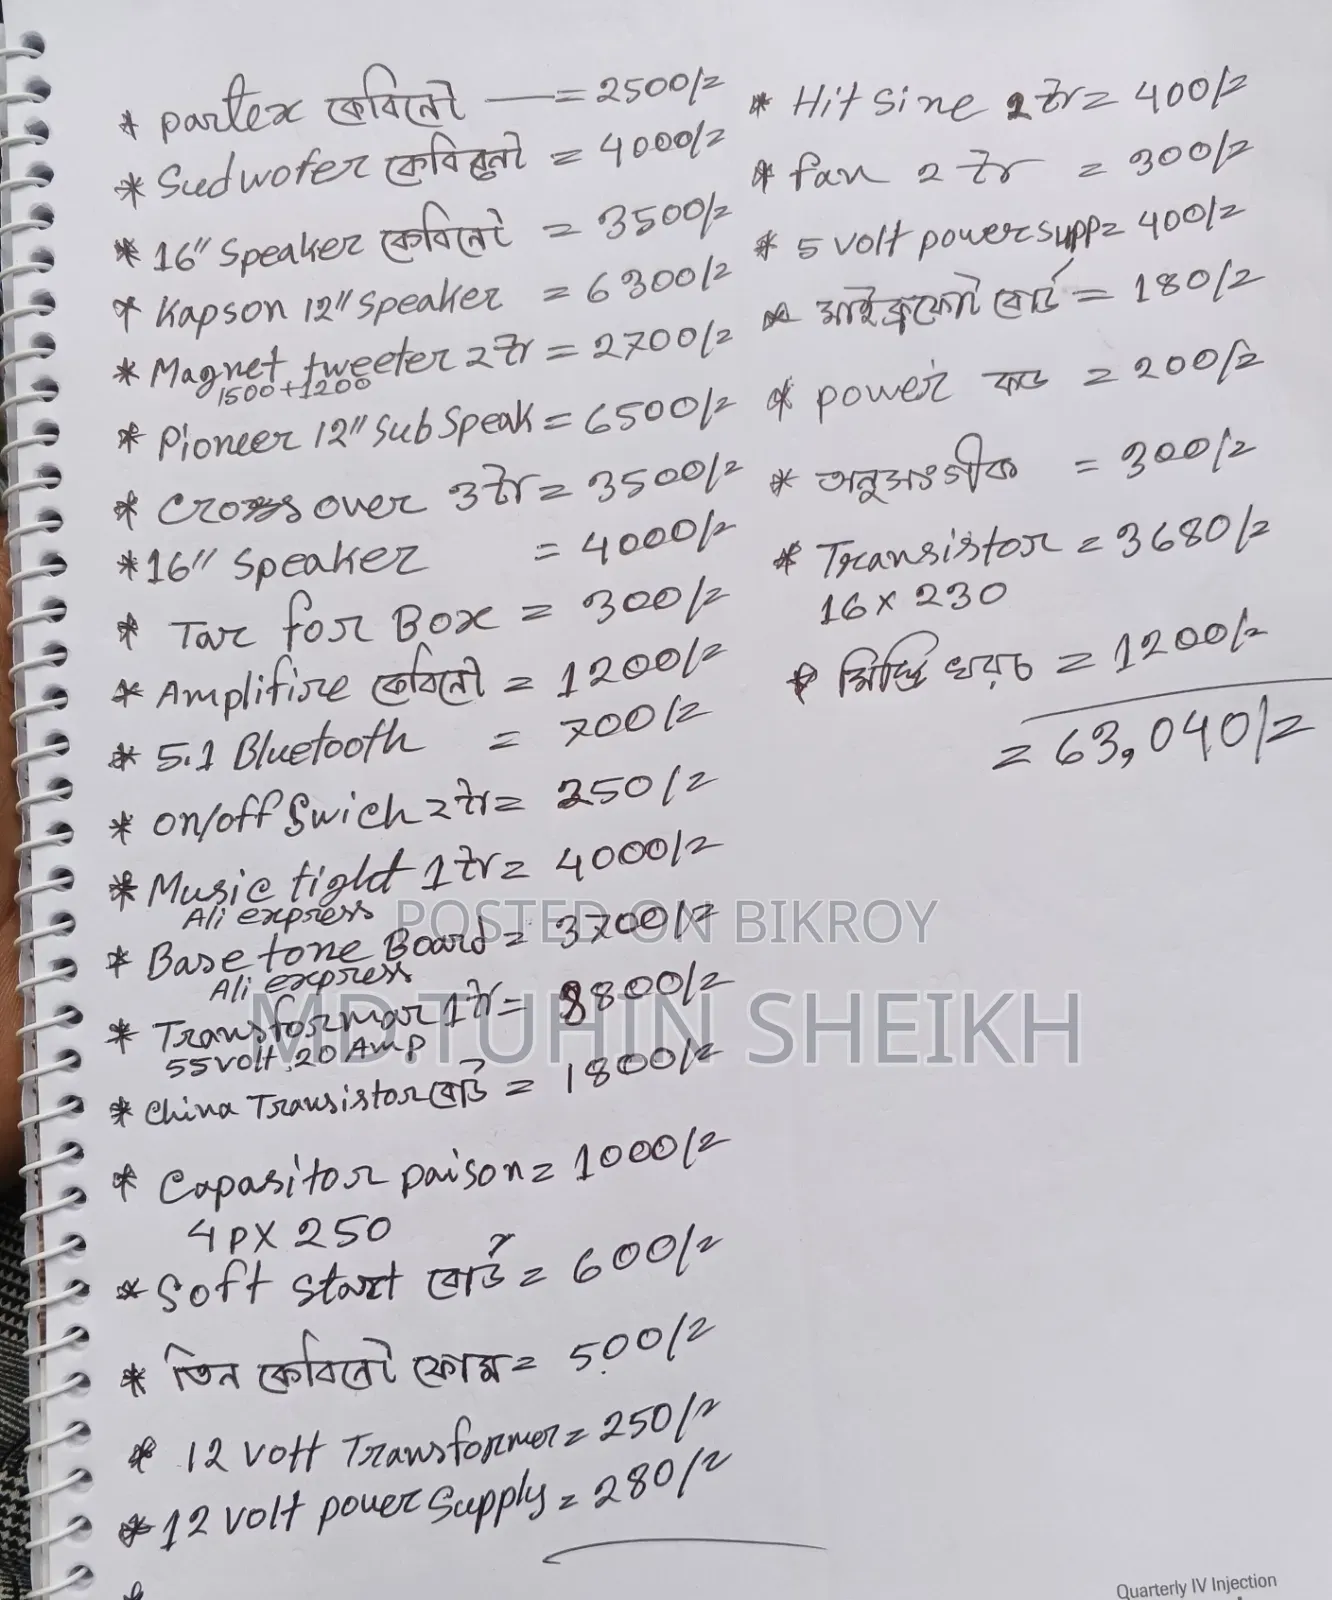 * partex কেবিনেট —= 2500/=
* Sudwofer কেবিনেট = 4000/=
* 16" Speaker কেবিনেট = 3500/=
* Kapson 12" Speaker = 6300/=
* Magnet tweeter 2টা = 2700/=
1500+1200
* Pioneer 12" Sub Speak = 6500/=
* Cross over 3টা = 3500/=
* 16" Speaker = 4000/=
* Tar for Box = 300/=
* Amplifire কেবিনেট = 1200/=
* 5.1 Bluetooth = 700/=
* on/off Swich 2টা = 250/=
* Music tight 1টা = 4000/=
Ali express
* Base tone Board = 3700/=
Ali express
* Transformar 1টা = 8800/=
55 volt 20 Amp
* China Transistor বোর্ড = 1800/=
* Capasitor paison = 1000/=
4 px 250
* Soft start বোর্ড = 600/=
* তিন কেবিনেট ফোম = 500/=
* 12 volt Transformer = 250/=
* 12 volt power Supply = 280/=
*
* Hit Sine 2টা = 400/=
* fan 2টা = 300/=
* 5 volt power supp = 400/=
* মাইক্রফোন বোর্ড = 180/=
* power কড = 200/=
* অনুসংগীক = 300/=
* Transistor = 3680/=
16 x 230
* মিস্ত্রি খরচ = 1200/=
= 63,040/=
POSTED ON BIKROY
MD.TUHIN SHEIKH
Quarterly IV Injection